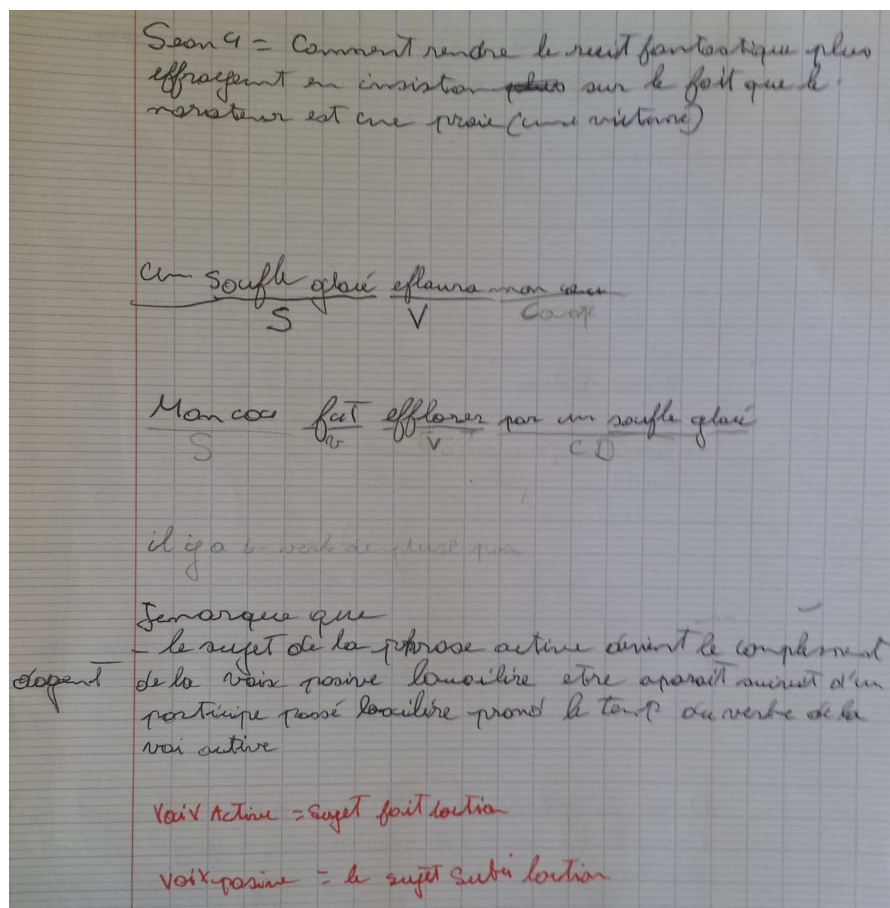 Sean 4 = Comment rendre le recit fantastique plus
effrayent en insistan plus sur le fait que le
narateur est une proie (une victime)
un soufle glacé eflaura mon cou
S V
Mon cou fut efflorer par un soufle glacé
S V V CD
il y a un verbe de plus
Jemarque que
- le sujet de la phrose active devient le complément
dagent de la voix posive lauxilire etre aparait suivit d'un
porticipe passé lauxilire prend le temp du verbe de la
voi active
Voix Active = Sujet fait laction
voix posive = le sujet Subi laction